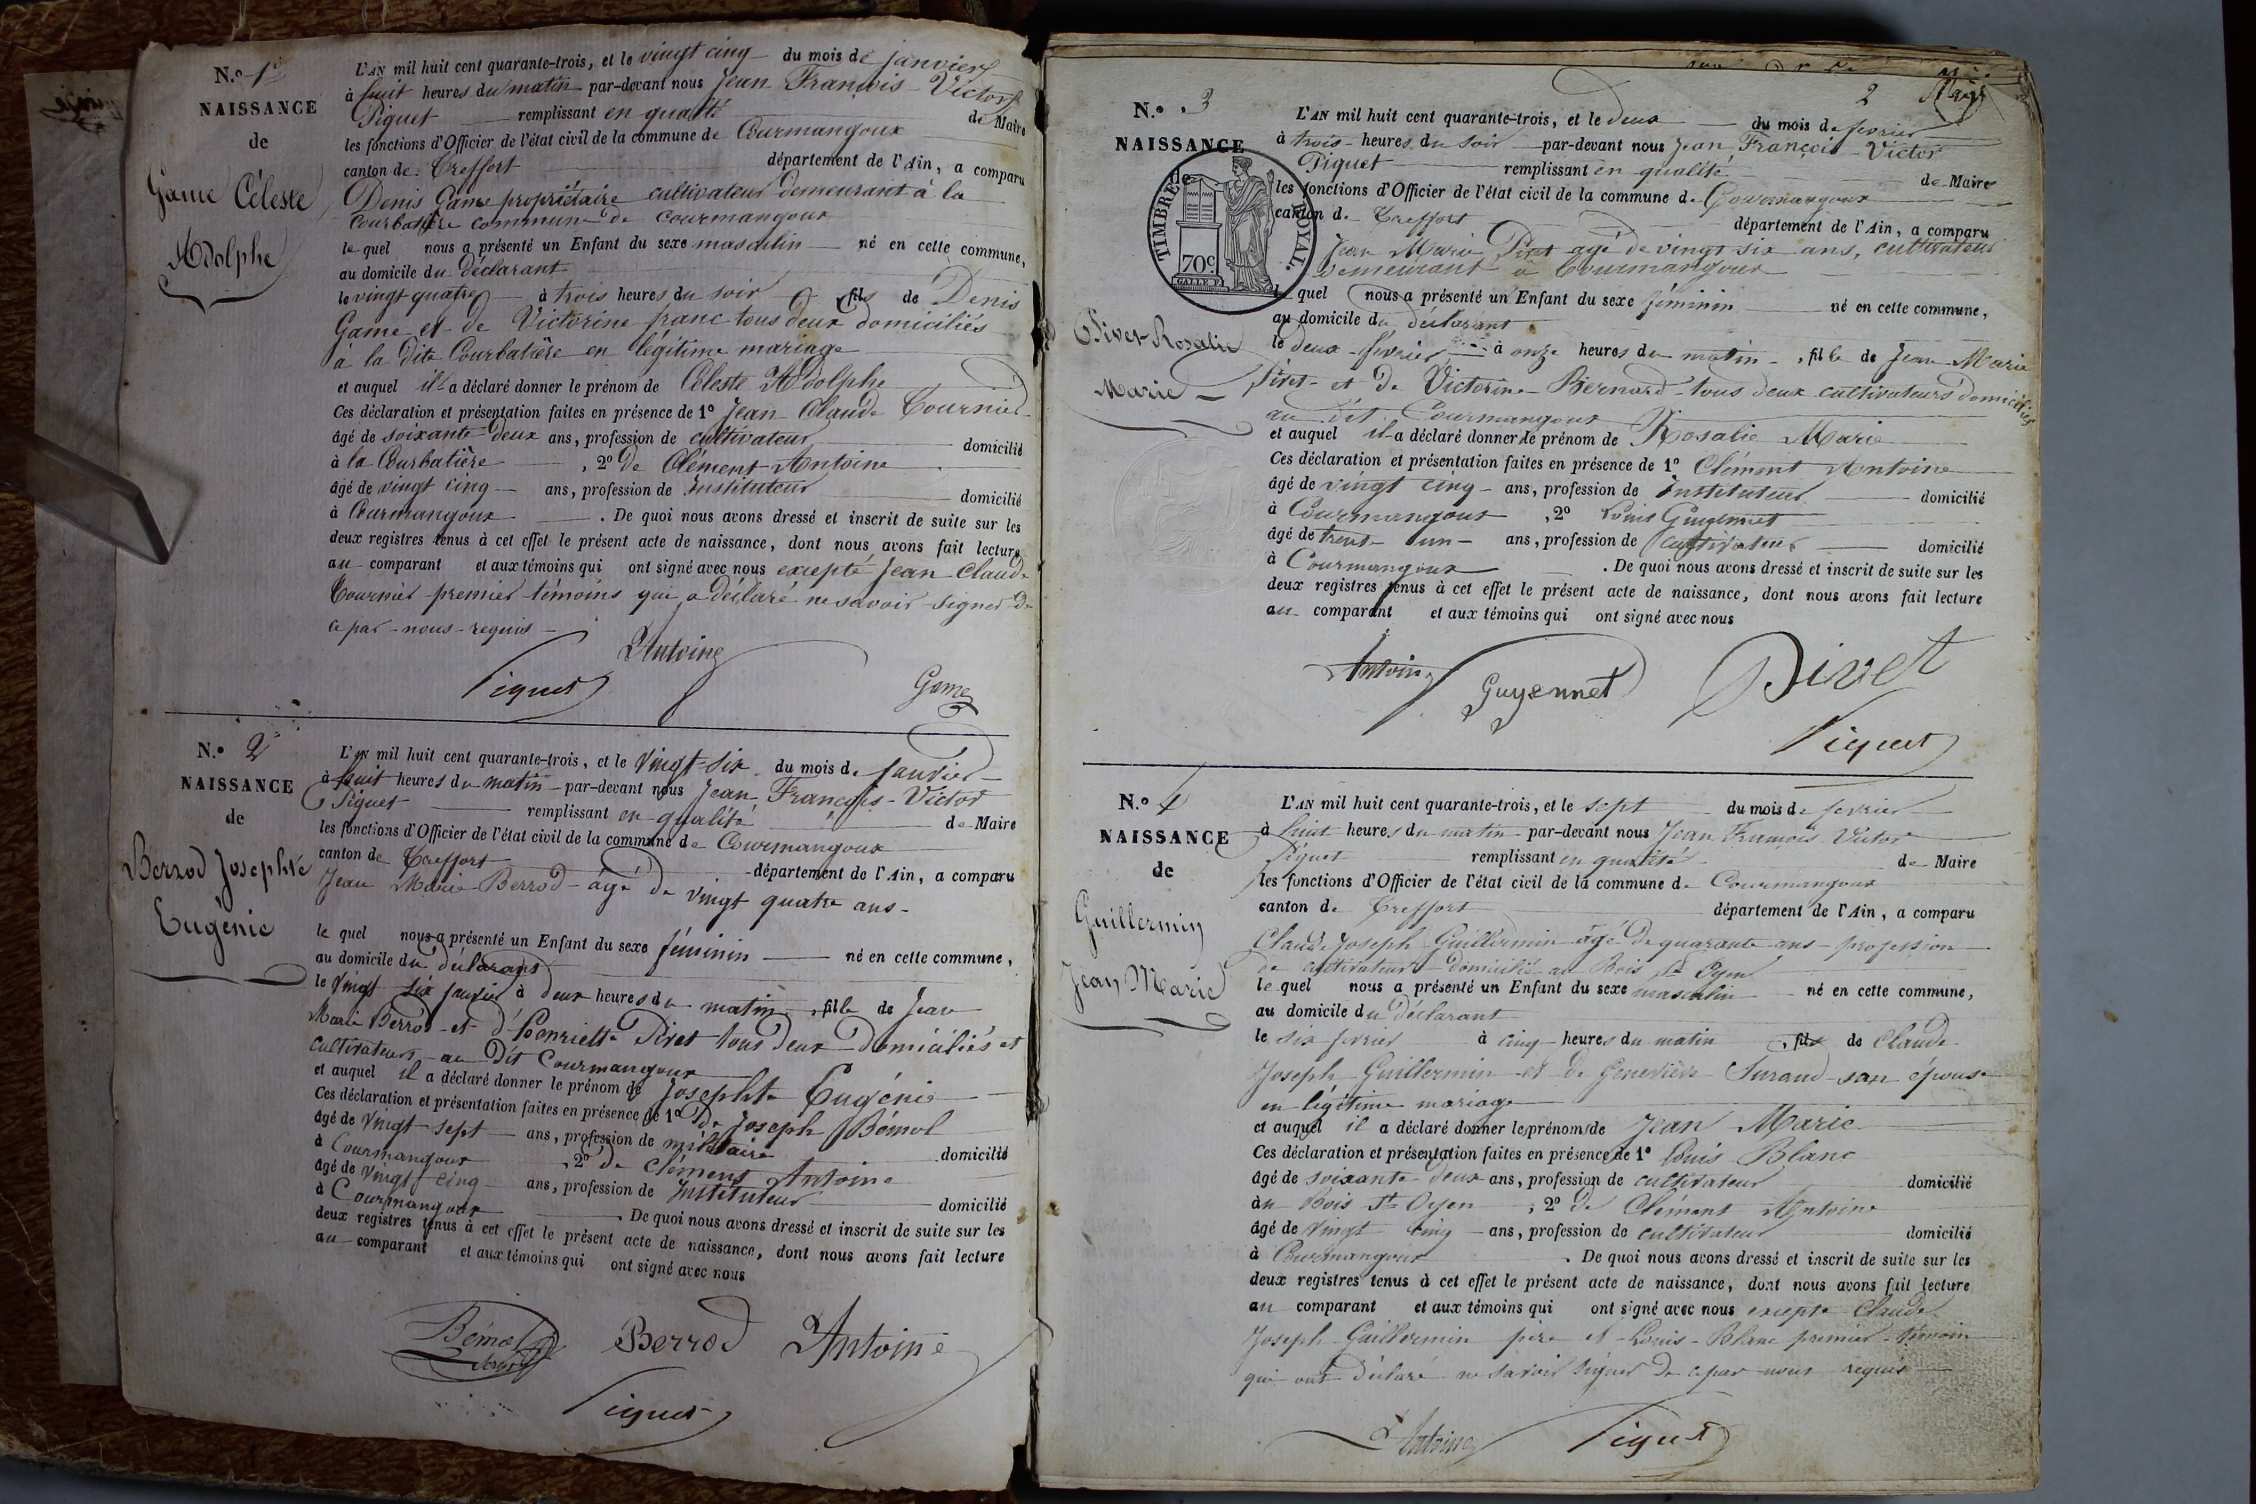 N.º 1er
NAISSANCE
de
Game Céleste
Adolphe
L'AN mil huit cent quarante-trois, et le vingt cinq du mois de janvier
à huit heures du matin par-devant nous Jean François Victor
Piquet remplissant en qualité de Maire
les fonctions d'Officier de l'état civil de la commune de Courmangoux
canton de Treffort département de l'Ain, a comparu
Denis Game propriétaire cultivateur demeurant à la
Courbatière commune de Courmangoux
le quel nous a présenté un Enfant du sexe masculin né en cette commune,
au domicile du déclarant
le vingt quatre à trois heures du soir fils de Denis
Game et de Victorine franc tous deux domiciliés
à la dite Courbatière en légitime mariage
et auquel il a déclaré donner le prénom de Céleste Adolphe
Ces déclaration et présentation faites en présence de 1º Jean Claude Tournier
âgé de soixante deux ans, profession de cultivateur domicilié
à la Courbatière , 2º de Clément Antoine
âgé de vingt cinq ans, profession de instituteur domicilié
à Courmangoux . De quoi nous avons dressé et inscrit de suite sur les
deux registres tenus à cet effet le présent acte de naissance, dont nous avons fait lecture
au comparant et aux témoins qui ont signé avec nous excepté Jean Claude
Tournier premier témoins qui a déclaré ne savoir signer de
ce par nous requis
Antoine
Piquet
Game
N.º 2
NAISSANCE
de
Berrod Josephte
Eugénie
L'AN mil huit cent quarante-trois, et le vingt-six du mois de janvier
à huit heures du matin par-devant nous Jean François-Victor
Piquet remplissant en qualité de Maire
les fonctions d'Officier de l'état civil de la commune de Courmangoux
canton de Treffort département de l'Ain, a comparu
Jean Marie Berrod âgé de vingt quatre ans
le quel nous a présenté un Enfant du sexe féminin né en cette commune,
au domicile du déclarant
le vingt six janvier à deux heures du matin , fille de Jean
Marie Berrod et d'henriette Piret tous deux domiciliés et
cultivateurs au dit Courmangoux
et auquel il a déclaré donner le prénom de Josephte Eugénie
Ces déclaration et présentation faites en présence de 1º de Joseph Bémol
âgé de vingt-sept ans, profession de militaire domicilié
à Courmangoux , 2º de clément Antoine
âgé de vingt cinq ans, profession de instituteur domicilié
à Courmangoux . De quoi nous avons dressé et inscrit de suite sur les
deux registres tenus à cet effet le présent acte de naissance, dont nous avons fait lecture
au comparant et aux témoins qui ont signé avec nous
Bémol
Berrod
Antoine
Piquet
2
N.º 3
NAISSANCE
de
TIMBRE ROYAL.
70c
GALLE F.
Rosalie
Marie
L'AN mil huit cent quarante-trois, et le deux du mois de fevrier
à trois heures du soir par-devant nous Jean François-Victor
Piquet remplissant en qualité de Maire
les fonctions d'Officier de l'état civil de la commune de Courmangoux
canton de Treffort département de l'Ain, a comparu
Jean Marie Piret agé de vingt six ans, cultivateur
demeurant à Courmangoux
le quel nous a présenté un Enfant du sexe féminin né en cette commune,
au domicile du déclarant
le deux fevrier à onze heures du matin , fille de Jean Marie
Piret et de Victorine Bernard tous deux cultivateurs domiciliés
au dit Courmangoux
et auquel il a déclaré donner le prénom de Rosalie Marie
Ces déclaration et présentation faites en présence de 1º Clément Antoine
âgé de vingt cinq ans, profession de instituteur domicilié
à Courmangoux , 2º Louis Guyennet
âgé de trente un ans, profession de cultivateur domicilié
à Courmangoux . De quoi nous avons dressé et inscrit de suite sur les
deux registres tenus à cet effet le présent acte de naissance, dont nous avons fait lecture
au comparant et aux témoins qui ont signé avec nous
Antoine
Guyennet
Pivet
Piquet
N.º 4
NAISSANCE
de
Guillermin
Jean Marie
L'AN mil huit cent quarante-trois, et le sept du mois de fevrier
à huit heures du matin par-devant nous Jean François Victor
Piquet remplissant en qualité de Maire
les fonctions d'Officier de l'état civil de la commune de Courmangoux
canton de Treffort département de l'Ain, a comparu
Claude Joseph Guillermin âgé de quarante ans profession
de cultivateur domicilié au Bois St Oyen
le quel nous a présenté un Enfant du sexe masculin né en cette commune,
au domicile du déclarant
le six fevrier à cinq heures du matin , fils de Claude
Joseph Guillermin et de Geneviève Surand son épouse
en légitime mariage
et auquel il a déclaré donner le prénom de Jean Marie
Ces déclaration et présentation faites en présence de 1º Louis Blanc
âgé de soixante deux ans, profession de cultivateur domicilié
au Bois St Oyen , 2º de Clément Antoine
âgé de vingt cinq ans, profession de cultivateur domicilié
à Courmangoux . De quoi nous avons dressé et inscrit de suite sur les
deux registres tenus à cet effet le présent acte de naissance, dont nous avons fait lecture
au comparant et aux témoins qui ont signé avec nous excepté Claude
Joseph Guillermin père et Louis Blanc premier témoin
qui ont déclaré ne savoir signer de ce par nous requis
Antoine
Piquet